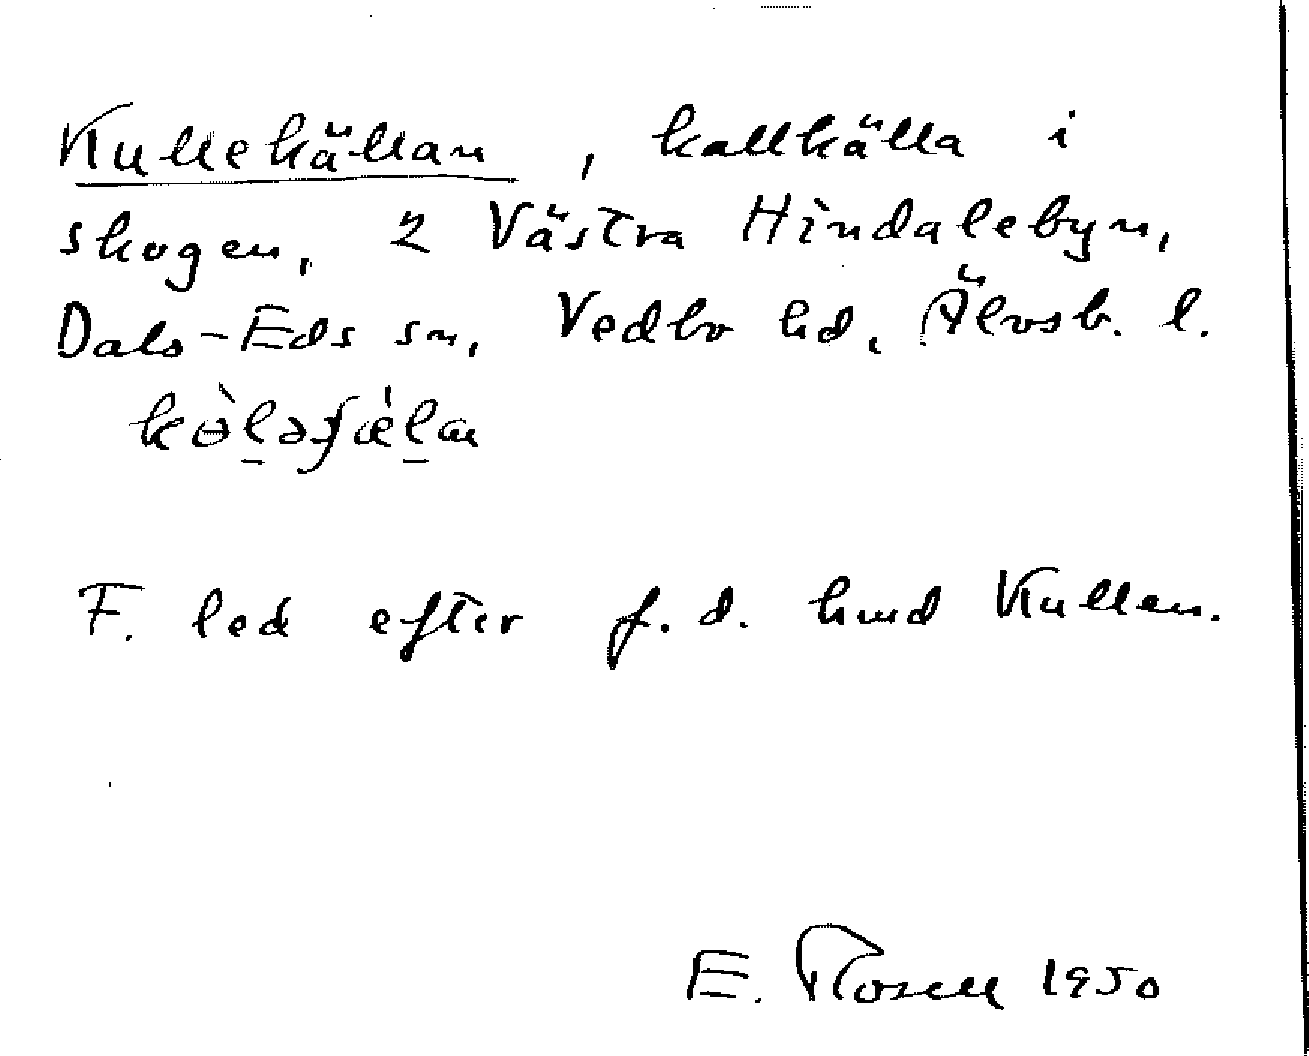 Kullekällan, kallkälla i
skogen, 2 Västra Hindalebyn,
Dals-Eds sn, Vedbo hd, Älvsb. l.
F. led efter f. d. hmd Kullen.
E. Rosell 1950